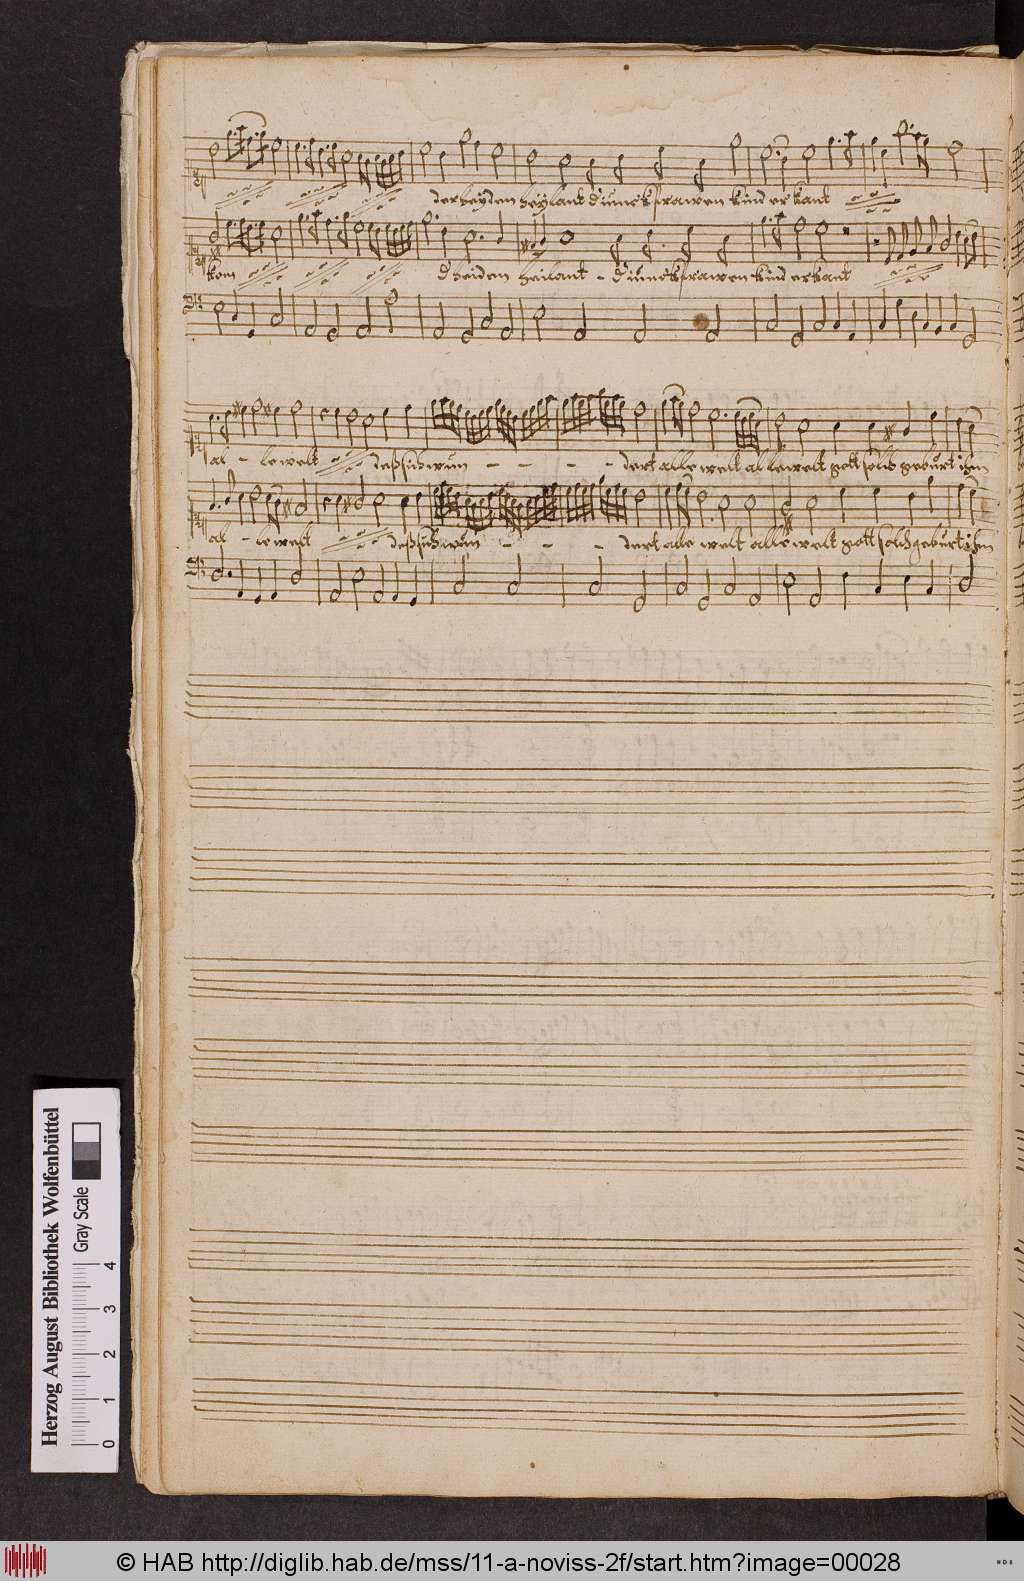 der heyden heylant d iunckfrawen kind erkant
kom d heiden heilant - d iunckfrawen kind erkant
al - le welt deß sich wun - - - - dert alle welt al le welt gott solch geburt ihm
al - le welt deß sich wun - - - dert alle welt alle welt gott solch geburt ihm
Herzog August Bibliothek Wolfenbüttel
Gray Scale
0 1 2 3 4
© HAB http://diglib.hab.de/mss/11-a-noviss-2f/start.htm?image=00028